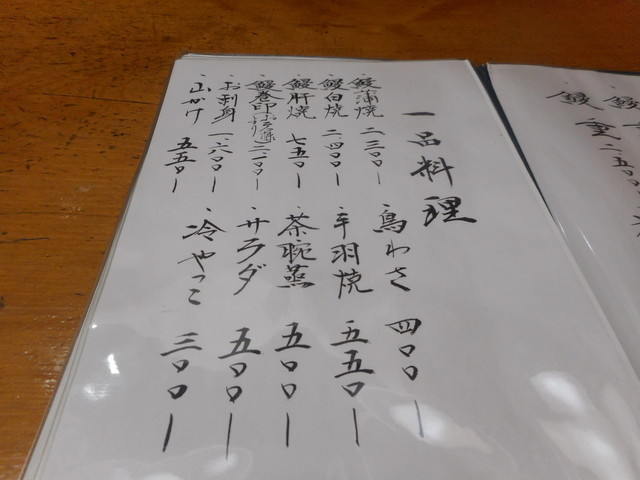 一品料理
・鰻蒲焼 二、三〇〇ー
・鰻白焼 二、四〇〇ー
・鰻肝焼 七五〇ー
・お刺身 一、六〇〇ー
・山かけ 五五〇ー
・鳥わさ 四〇〇ー
・手羽焼 五五〇ー
・茶碗蒸 五〇〇ー
・サラダ 五〇〇ー
・冷やっこ 三〇〇ー
鰻重 二、五〇〇
鰻